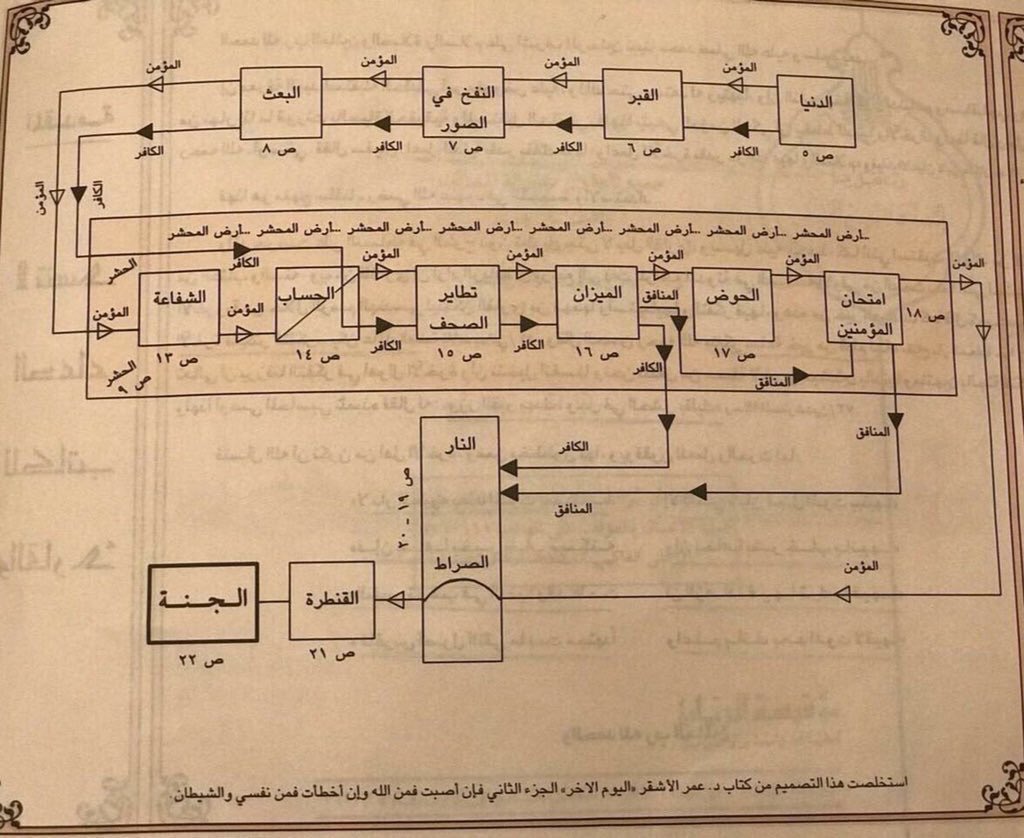 المؤمن
المؤمن
المؤمن
المؤمن
الدنيا
القبر
النفخ في
الصور
البعث
الكافر
الكافر
الكافر
الكافر
ص ٥
ص ٦
ص ٧
ص ٨
المؤمن
الكافر
...أرض المحشر ...أرض المحشر ...أرض المحشر ...أرض المحشر ...أرض المحشر ...أرض المحشر ...أرض المحشر ...أرض المحشر
الحشر
الكافر
المؤمن
المؤمن
المؤمن
المؤمن
المؤمن
المؤمن
الشفاعة
ص ١٣
المؤمن
الحساب
ص ١٤
الكافر
تطاير
الصحف
ص ١٥
الكافر
الميزان
ص ١٦
المنافق
الكافر
الحوض
ص ١٧
المنافق
امتحان
المؤمنين
ص ١٨
الحشر
ص ٩
المنافق
النار
ص ١٩ - ٢٠
الكافر
المنافق
الصراط
المؤمن
القنطرة
ص ٢١
الـجـنـة
ص ٢٢
استخلصت هذا التصميم من كتاب د. عمر الأشقر «اليوم الاخر» الجزء الثاني فإن أصبت فمن الله وإن أخطأت فمن نفسي والشيطان.